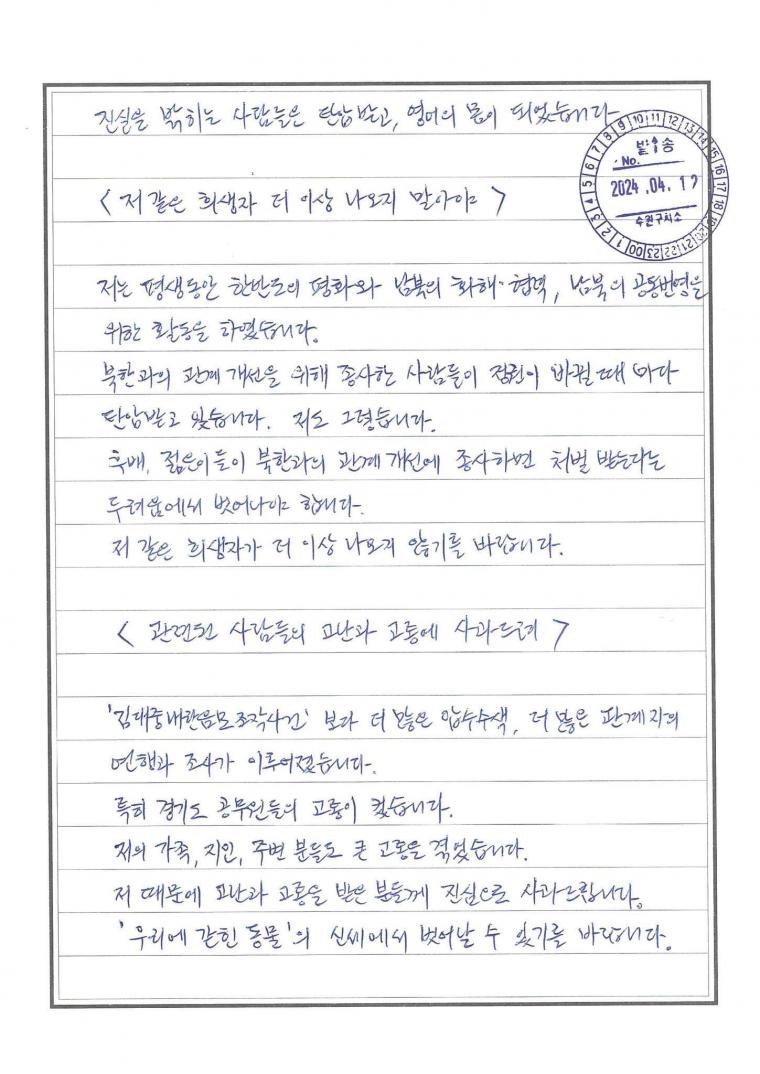 진실을 밝히는 사람들은 탄압받고, 영어의 몸이 되었습니다
발송
No.
2024.04.17
수원구치소
<저 같은 희생자 더 이상 나오지 말아야>
저는 평생동안 한반도의 평화와 남북의 화해·협력, 남북의 공동번영을
위한 활동을 하였습니다.
북한과의 관계 개선을 위해 종사한 사람들이 정권이 바뀔때 마다
탄압받고 있습니다. 저도 그렇습니다.
후배, 젊은이들이 북한과의 관계개선에 종사하면 처벌 받는다는
두려움에서 벗어나야 합니다.
저 같은 희생자가 더 이상 나오지 않기를 바랍니다.
<관련된 사람들의 고난과 고통에 사과드려>
'김대중내란음모조작사건' 보다 더 많은 압수수색, 더 많은 관계자의
연행과 조사가 이루어졌습니다.
특히 경기도 공무원들의 고통이 컸습니다.
저의 가족, 지인, 주변 분들도 큰 고통을 겪었습니다.
저 때문에 고난과 고통을 받은 분들께 진심으로 사과드립니다.
'우리에 갇힌 동물'의 신세에서 벗어날 수 있기를 바랍니다.